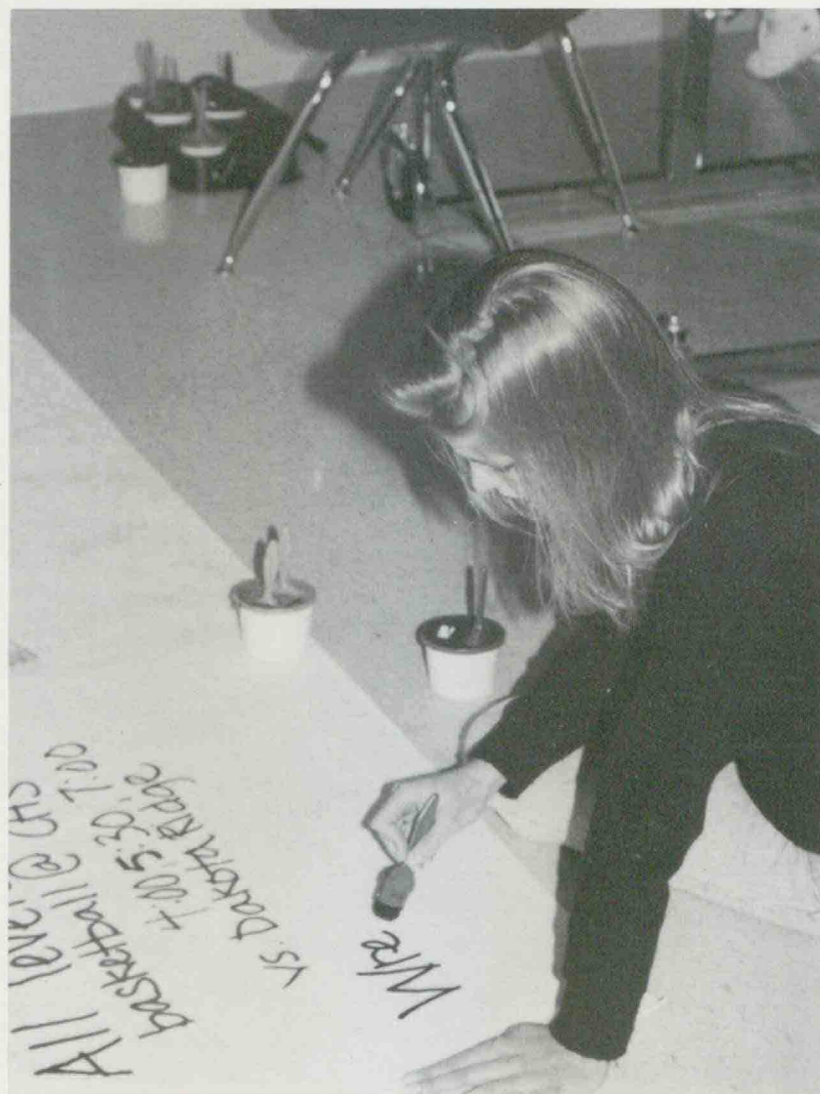 All level
basketball @ CHS
4:00, 5:30, 7:00
vs. Dakota Ridge
Wre